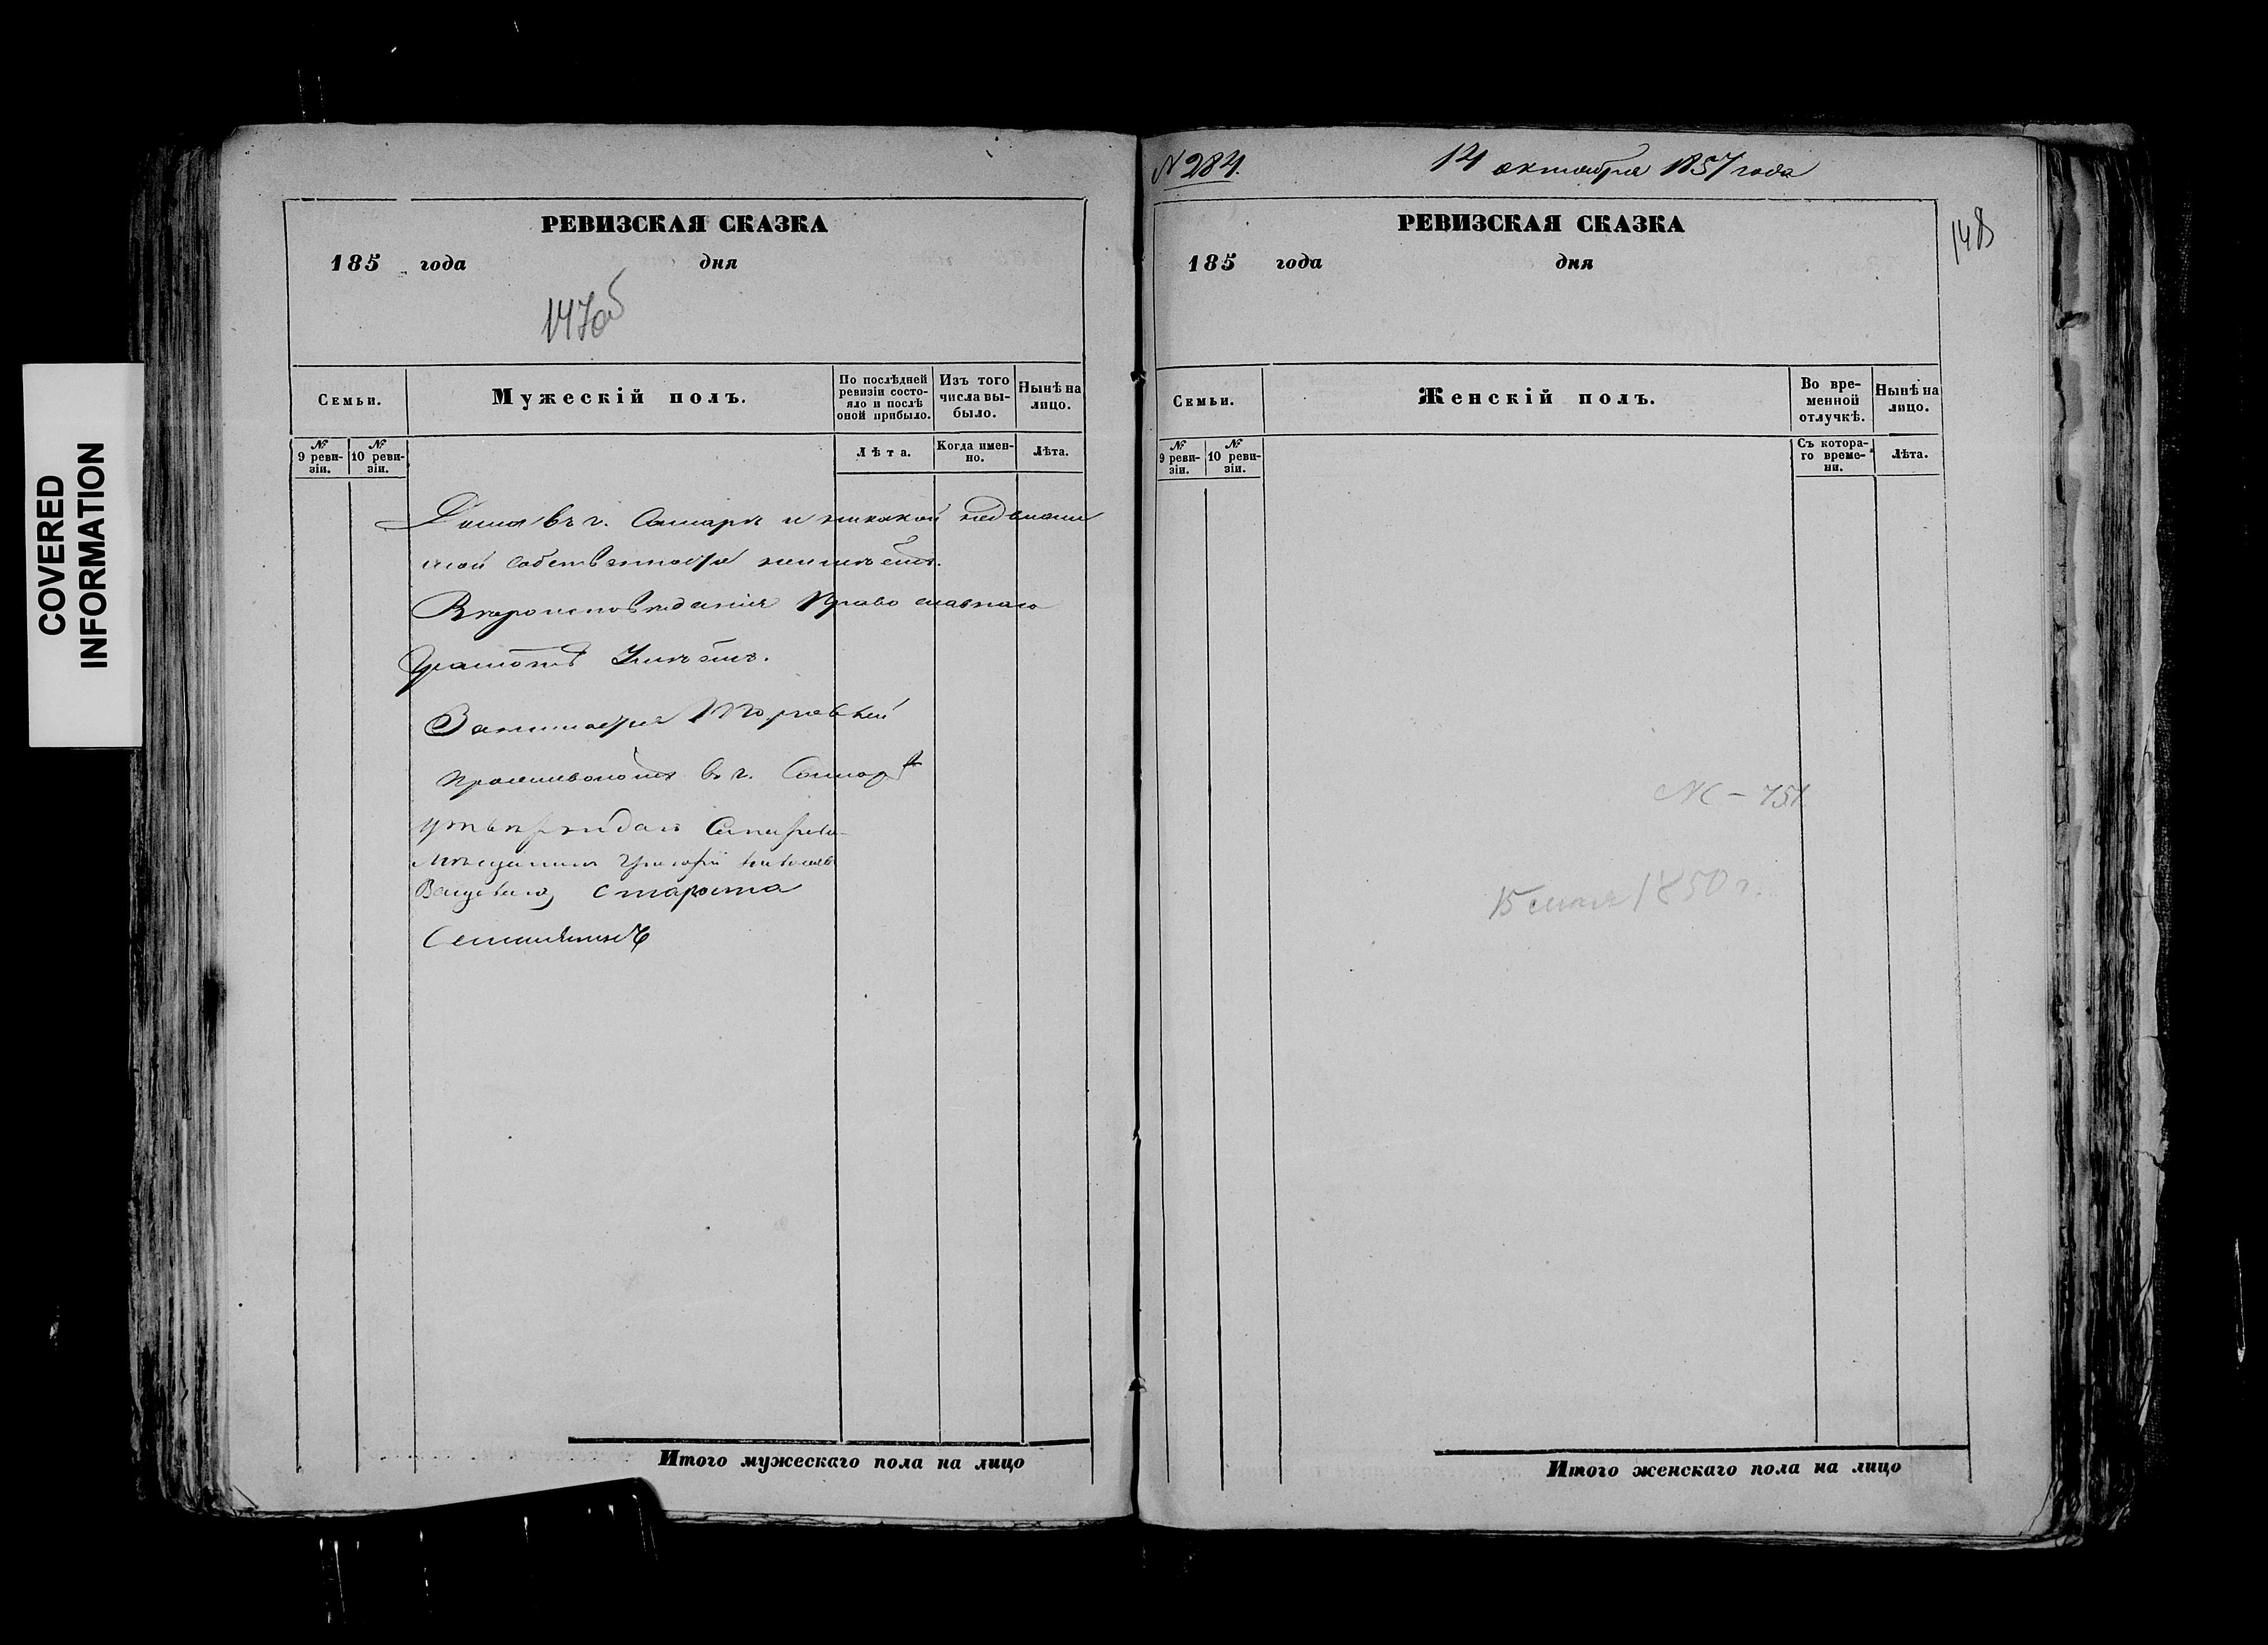 COVERED
INFORMATION
РЕВИЗСКАЯ СКАЗКА
185 года дня
147об
Семьи.
Мужескій полъ.
По послѣдней ревизіи состо-
яло и послѣ
оной прибыло.
Изъ того
числа вы-
было.
Нынѣ на
лицо.
№
9 реви-
зіи.
№
10 реви-
зіи.
Лѣта.
Когда имен-
но.
Лѣта.
Дома въ г. Самарѣ и никакой недвижи
мой собственности неимѣетъ.
Вѣроисповѣданія Православнаго
Грамотѣ Умѣетъ.
Занимается Торговлей
проживаютъ въ г. Самарѣ
Григорій
староста
N 284.
14 октября 1857 года
148
РЕВИЗСКАЯ СКАЗКА
185 года дня
Семьи.
Женскій полъ.
Во вре-
менной
отлучкѣ.
Нынѣ на
лицо.
№
9 реви-
зіи.
№
10 реви-
зіи.
Съ котора-
го време-
ни.
Лѣта.
751
15 1850 г.
Итого мужескаго пола на лицо
Итого женскаго пола на лицо